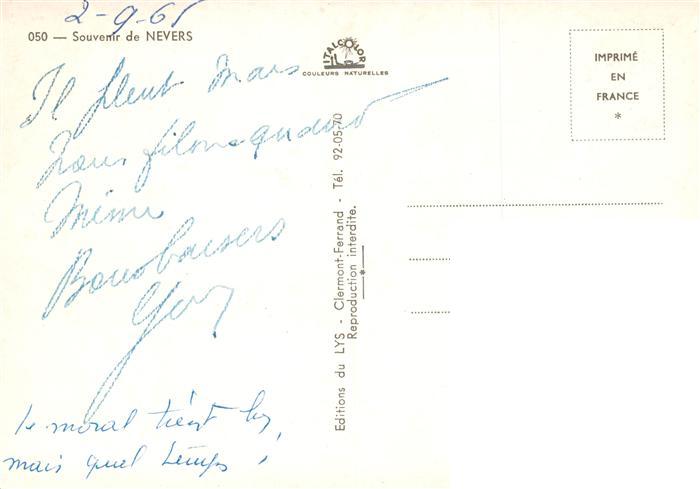 2-9-65
050 — Souvenir de NEVERS
ITALCOLOR
COULEURS NATURELLES
IMPRIMÉ
EN
FRANCE
*
Il pleut mais
nous filons quand
même
Bons baisers
Guy
le moral tient bon,
mais quel temps !
Editions du LYS - Clermont-Ferrand - Tél. 92-05-70
Reproduction interdite.